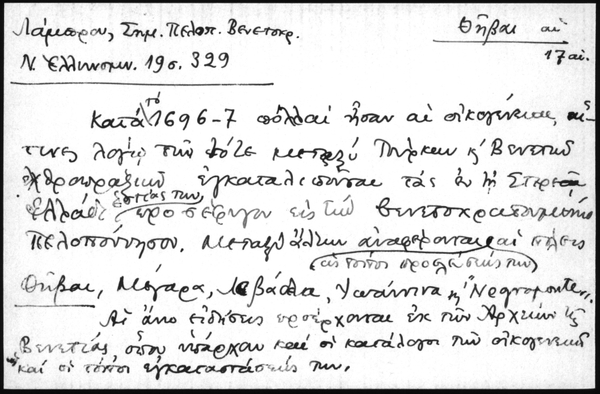 Λάμπρου, Σημ. Πελοπ. Βενετοκρ.
Θῆβαι αἱ
Ν. Ἑλληνομν. 19 σ. 329
17 αἰ.
Κατὰ τὸ 1696-7 πολλαὶ ἦσαν αἱ οἰκογένειαι, αἵ-
τινες λόγῳ τῶν τότε μεταξὺ Τούρκων κ' Βενετῶν
ἐχθροπραξιῶν ἐγκαταλιποῦσαι τὰς ἐν τῇ Στερεᾷ
Ἑλλάδι ἑστίας των, προσέφυγον εἰς τὴν Βενετοκρατουμένην
Πελοπόννησον. Μεταξὺ ἄλλων ἀναφέρονται αἱ πόλεις
(ὡς τόποι προελεύσεώς των)
Θῆβαι, Μέγαρα, Λεβάδια, Ἰωάννινα κ' Negroponte.
Αἱ ἄνω εἰδήσεις προέρχονται ἐκ τῶν Ἀρχείων τῆς
Βενετίας ὅπου ὑπάρχουν καὶ οἱ κατάλογοι τῶν οἰκογενειῶν
καὶ οἱ τόποι ἐγκαταστάσεώς των.